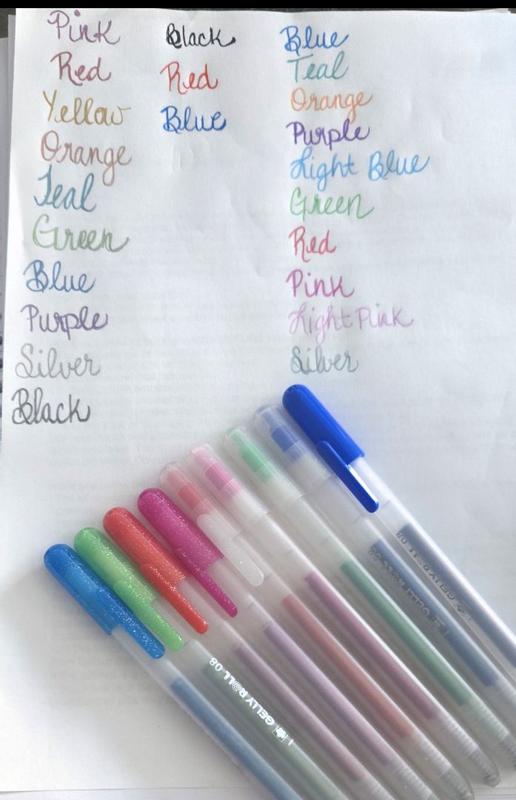 Pink
Red
Yellow
Orange
Teal
Green
Blue
Purple
Silver
Black
Black
Red
Blue
Blue
Teal
Orange
Purple
Light Blue
Green
Red
Pink
Light Pink
Silver
GELLY ROLL 08
GELLY ROLL 08